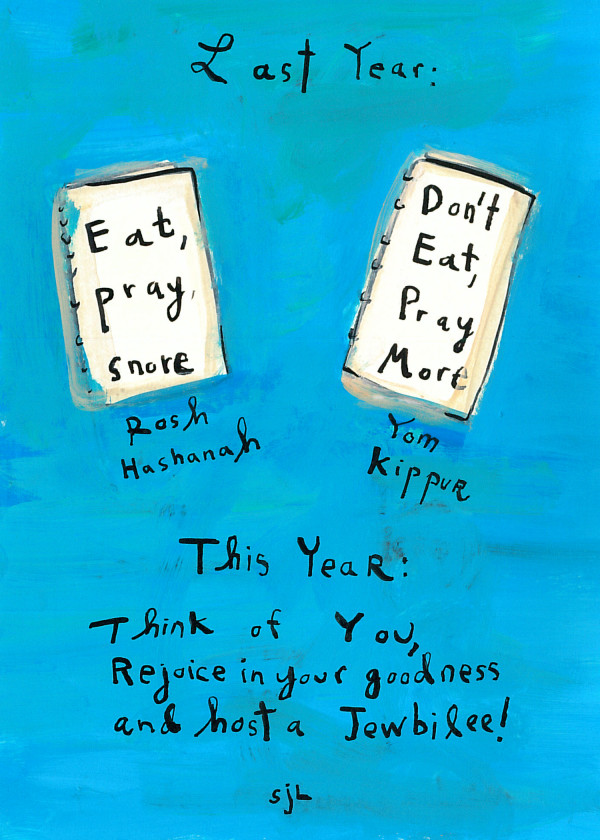 Last Year:
Eat,
pray,
snore
Rosh
Hashanah
Don't
Eat,
Pray
More
Yom
Kippur
This Year:
Think of You,
Rejoice in your goodness
and host a Jewbilee!
sjL